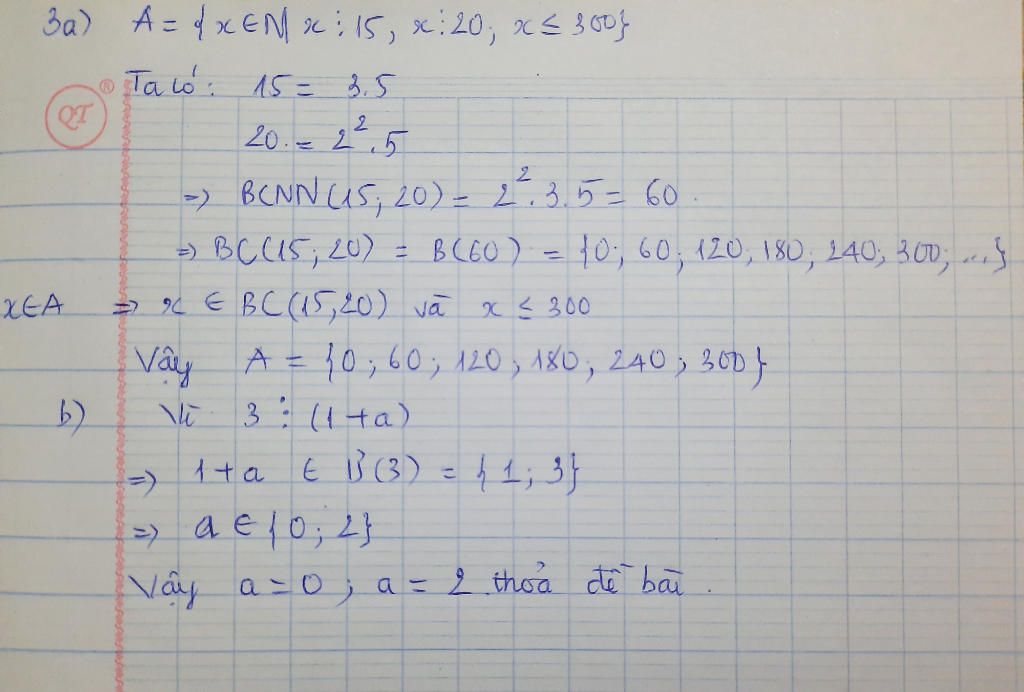 3a) A = {x ∈ N| x ⋮ 15, x ⋮ 20; x ≤ 300}
QT ®
Ta có: 15 = 3.5
20 = 2².5
=> BCNN(15; 20) = 2².3.5 = 60
=> BC(15; 20) = B(60) = {0; 60; 120; 180; 240; 300; ...}
x∈A => x ∈ BC(15,20) và x ≤ 300
Vậy A = {0; 60; 120; 180; 240; 300}
b) Vì 3 ⋮ (1+a)
=> 1+a ∈ B(3) = {1; 3}
=> a ∈ {0; 2}
Vậy a = 0; a = 2 thoả đề bài.